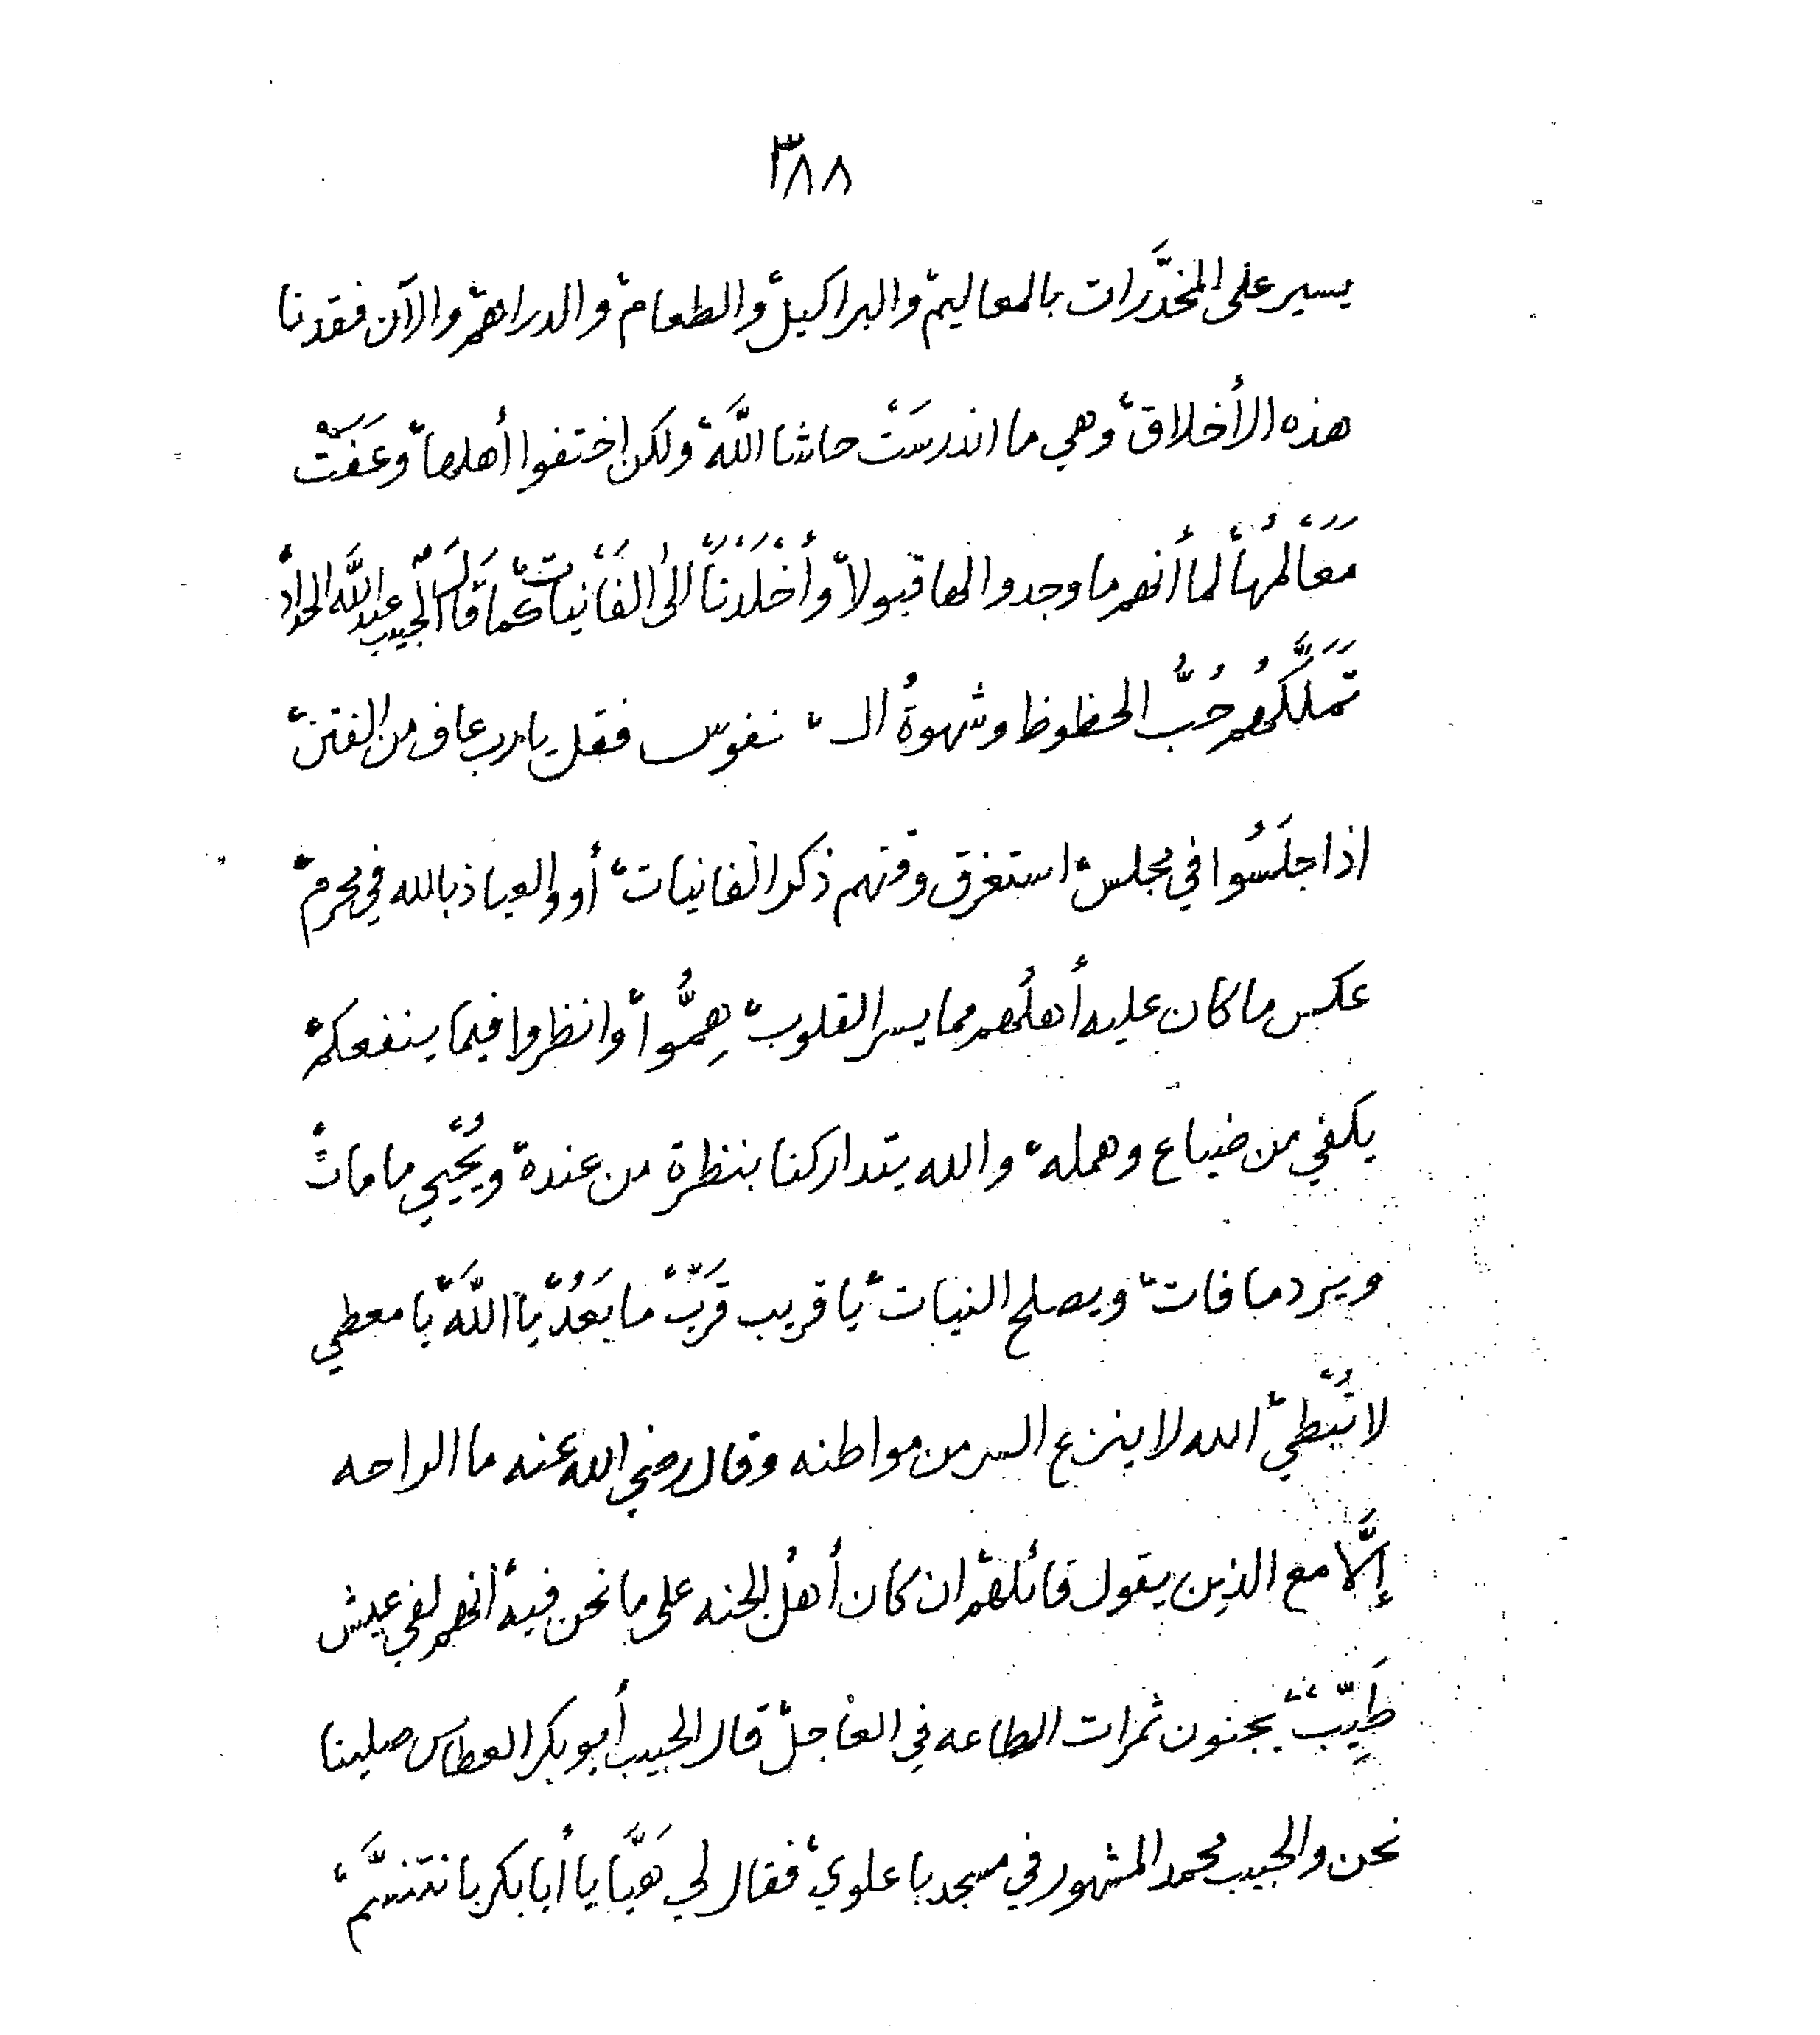 ٣٨٨
يسير على المخدَّرات بالمعاليم، والبراكيل، والطعام، والدراهم، والآن فقدنا
هذه الأخلاق، وهي ما اندرسَتْ حاشا اللَّهْ، ولكن اختفوا أهلها، وعَفَتْ
مَعَالمُها، لما أنهم ما وجدوا لها قبولا، وأَخْلَدْنَا إلى الفَانيات، كَمَا قَالَ الحبيب عبدالله الحداد،
تَمَلَّكَهُم حُبُّ الحظوظ وشهوةُ الـ ، نفوس فقل يارب عاف من الفتن،
اذا جلَسُوا في مجلس، استغرق وقتهم ذكر الفانيات، أو والعياذ بالله في محرم،
عكس ما كان عليه أهلُهم مما يسر القلوب، هِمُّوا، وانظروا فيما ينفعكم،
يكفي من ضياع وهمله، والله يتداركنا بنظرة من عنده، ويُحْيي ما ماتْ،
ويرد ما فات، ويصلح النيات، يا قريب قرَبّْ ما بَعُدْ، يا اللَّهْ، يا معطي
لا تُبْطي، الله لا ينزع السر من مواطنه وقال رضي الله عنه ما الراحه
إلَّا مع الذين يقول قائلهم، ان كان أهلُ الجنه على ما نحن فيه، انهم لفي عيش
طَيِّبْ، يجنون ثمرات الطاعه في العاجل، قال الحبيب أبو بكر العطاس صلينا
نحن والحبيب محمد المشهور في مسجد با علوي، فقال لي هَيَّا يا أبا بكر با نتنسَّمْ،